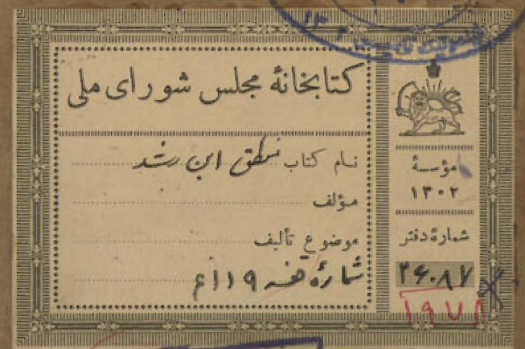 کتابخانهٔ مجلس شورای ملی
نام کتاب منطق ابن رشد
مؤلف
موضوع تألیف
شمارهٔ قفسه ۱۱۹
مؤسسهٔ
۱۳۰۲
شمارهٔ دفتر
۲۶۰۸۷
۱۹۷۸